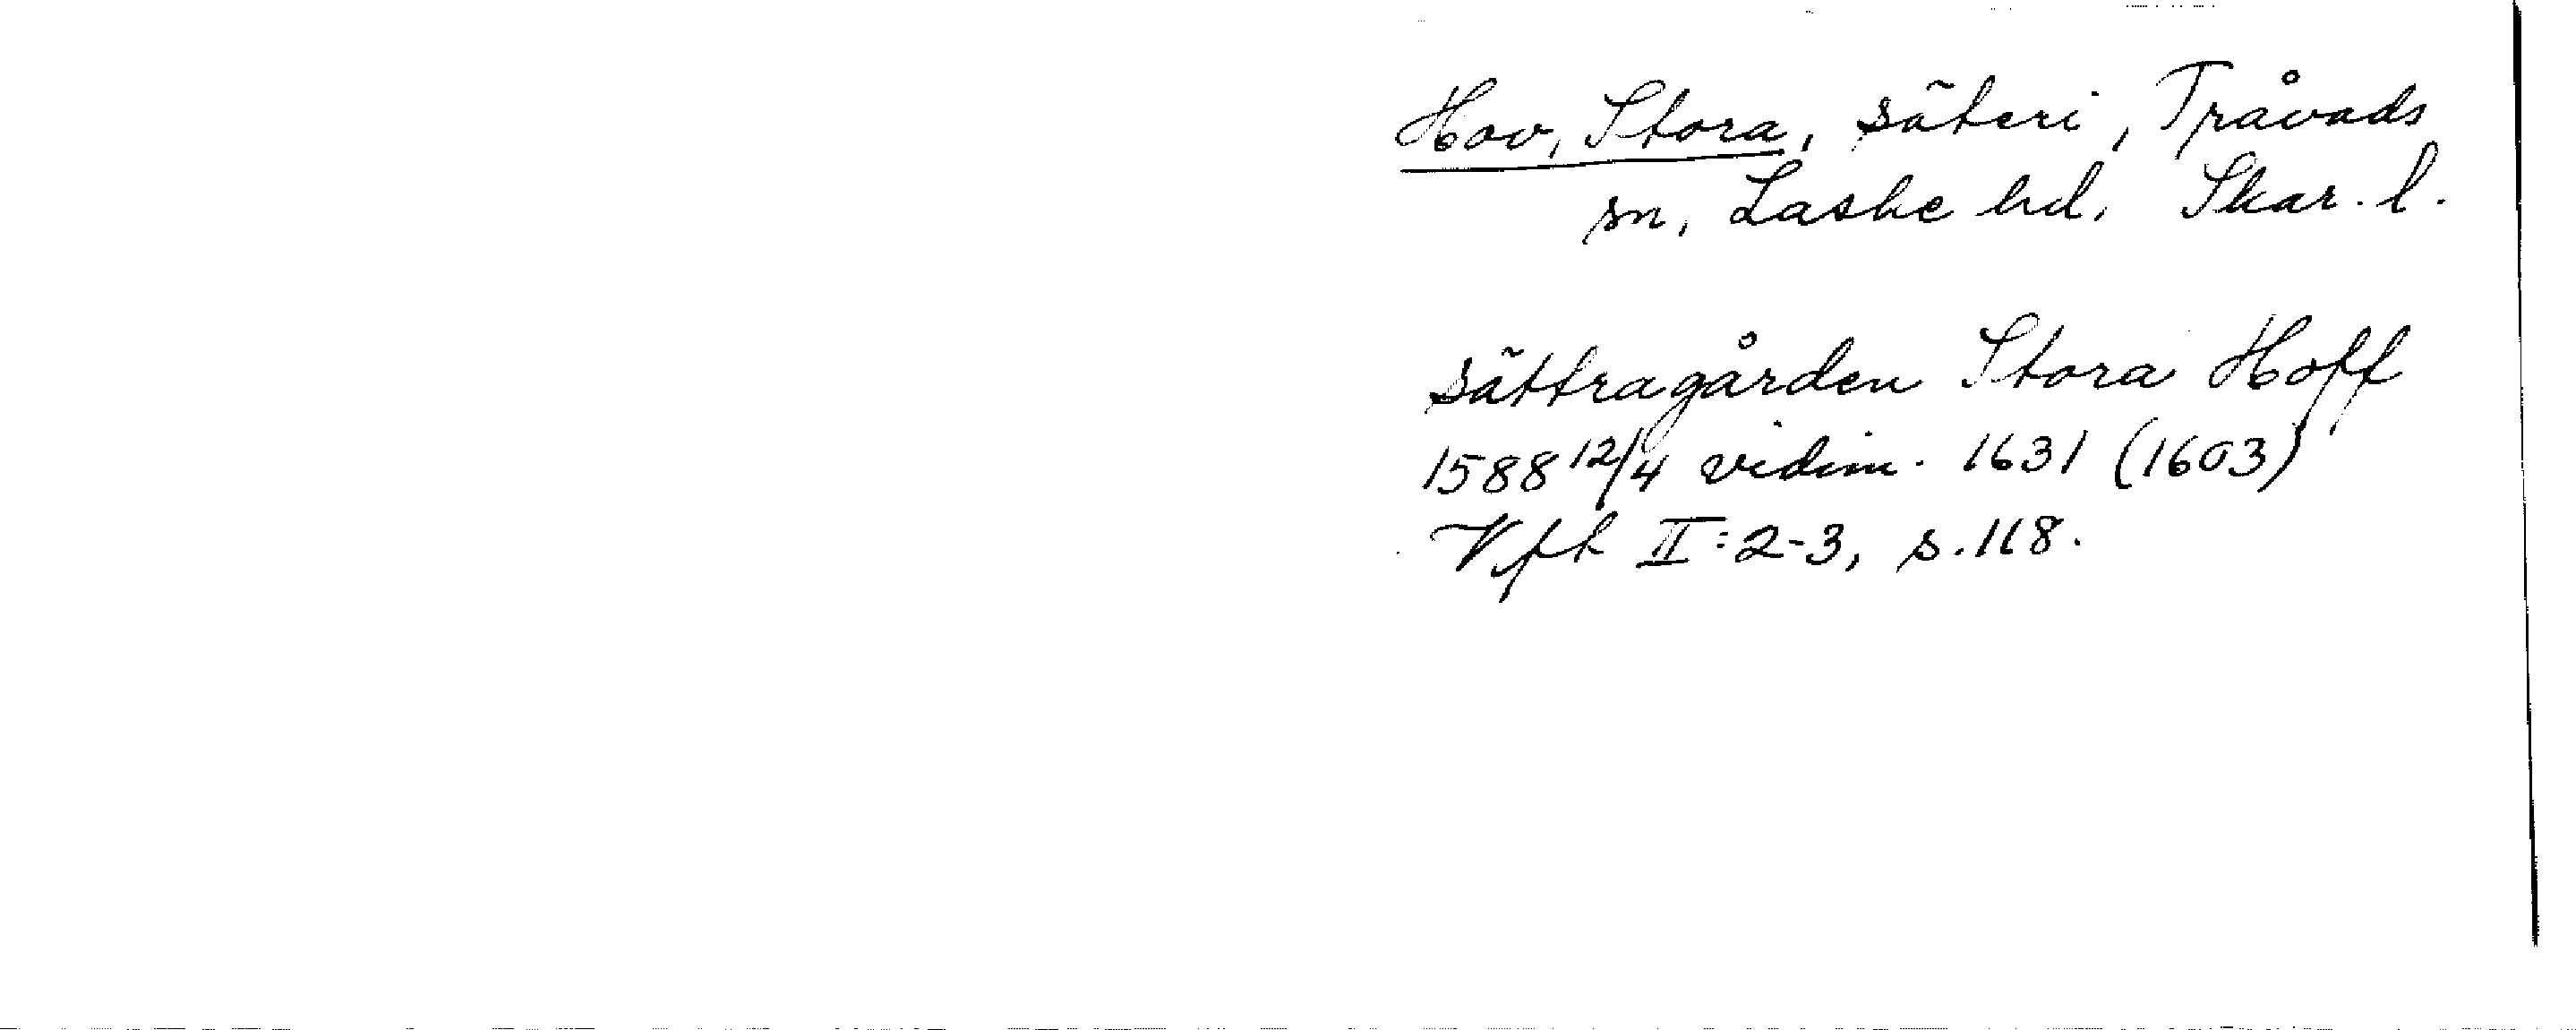 Hov, Stora, säteri, Tråvads
sn, Laske hd. Skar. l.
sättragården Stora Hoff
1588 12/4 vidim. 1631 (1603)
Vft II:2-3, s. 118.